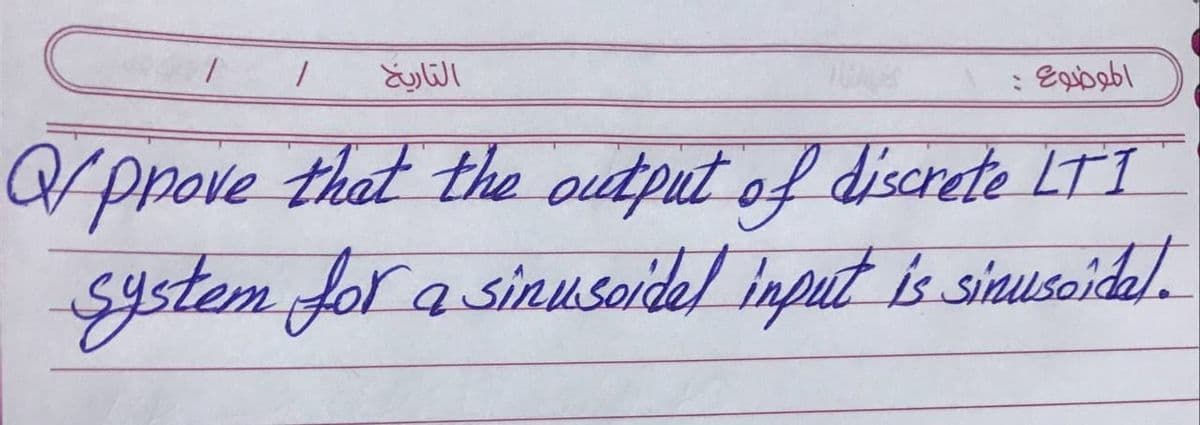 الموضوع : التاريخ / /
Q/ prove that the output of discrete LTI
system for a sinusoidal input is sinusoidal.